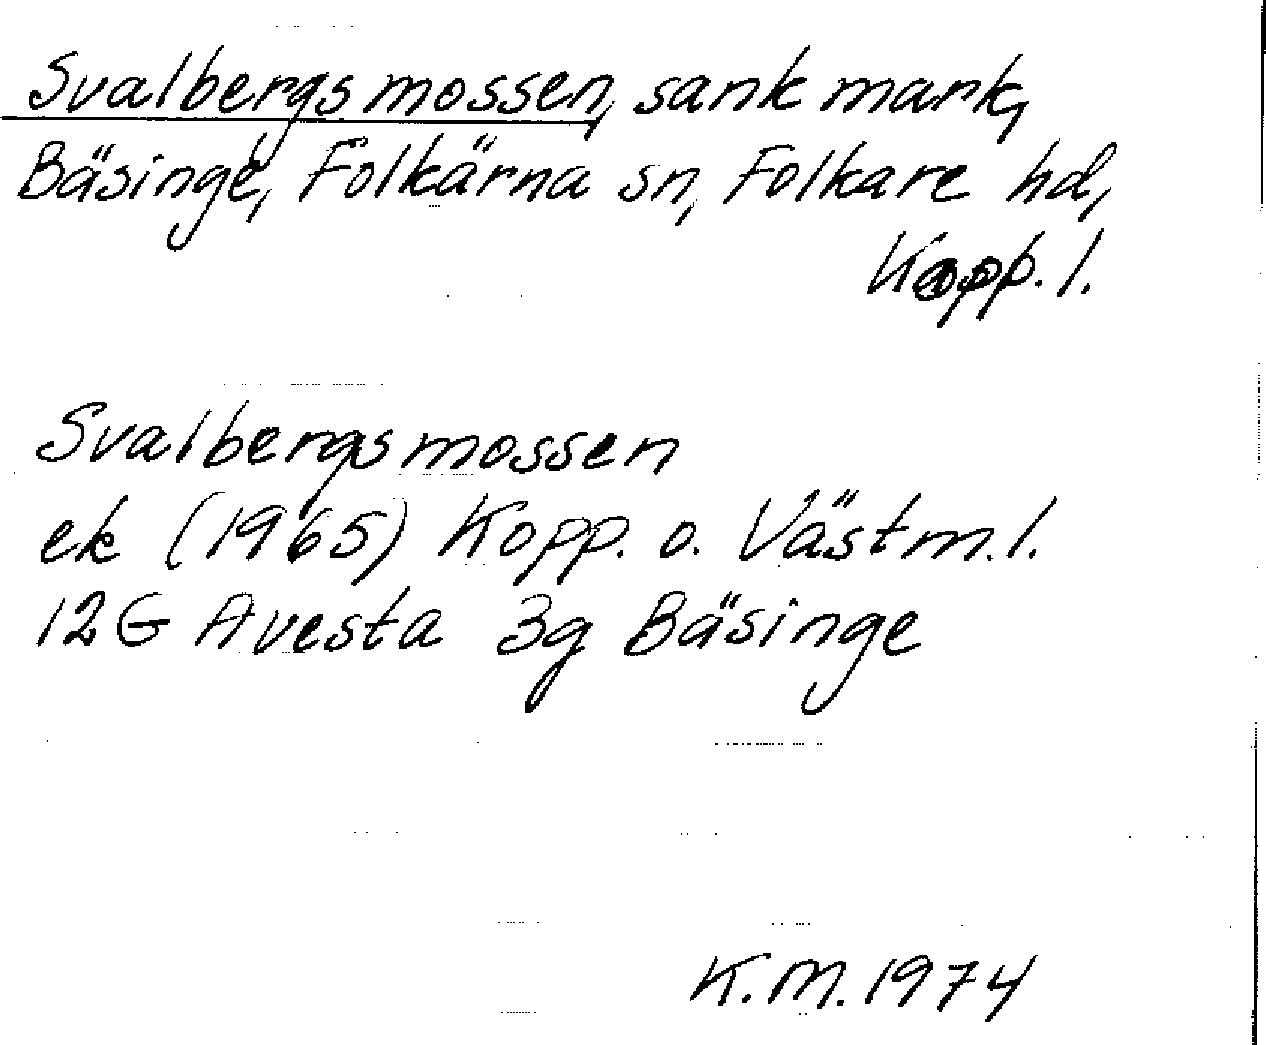 Svalbergsmossen, sank mark,
Bäsinge, Folkärna sn, Folkare hd,
Kopp. l.
Svalbergsmossen
ek (1965) Kopp. o. Västm. l.
12G Avesta 3g Bäsinge
K.M. 1974